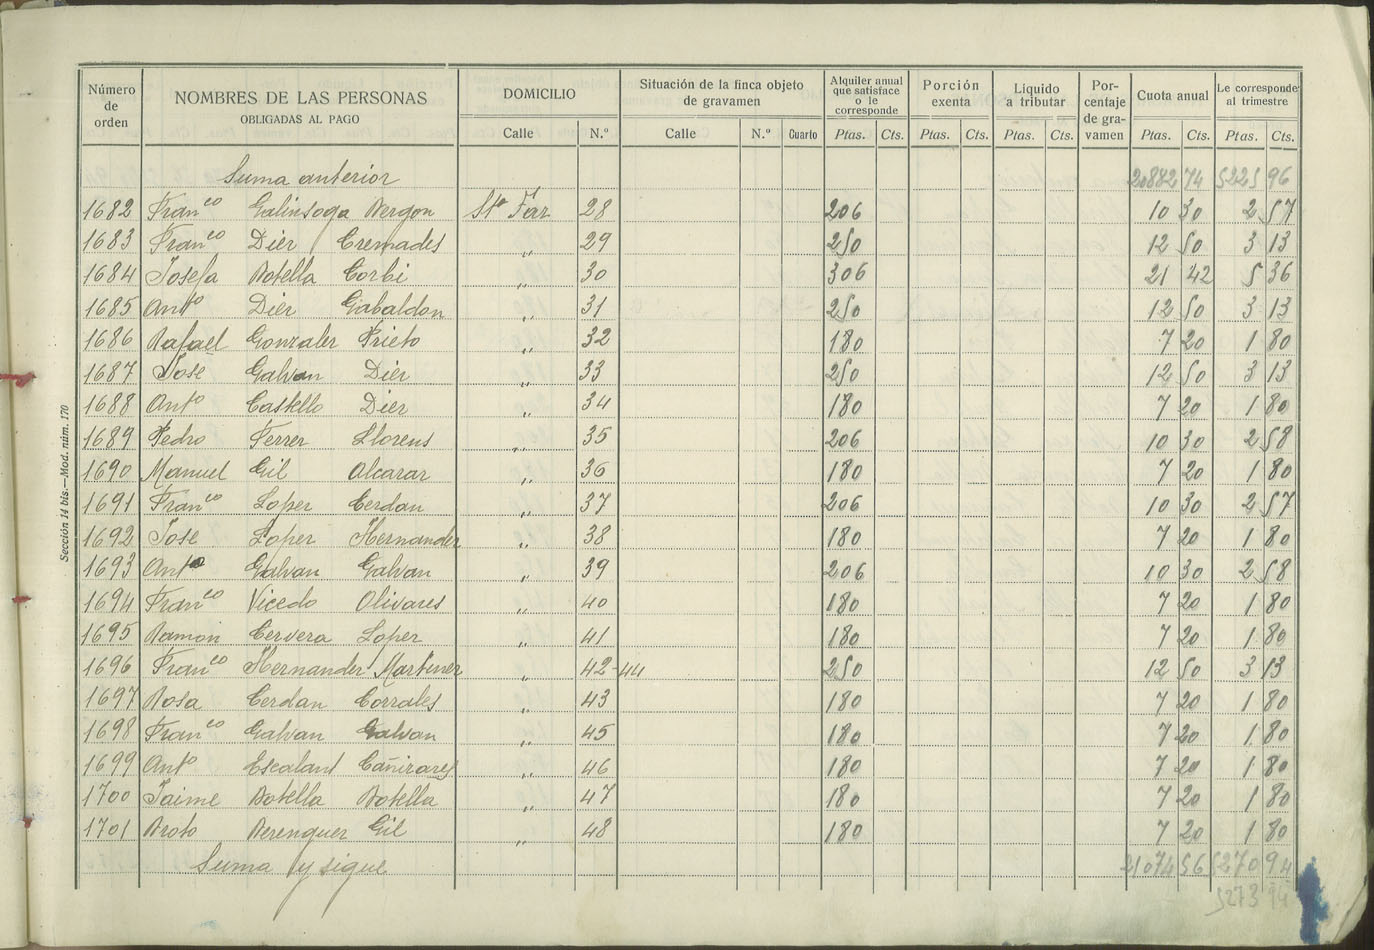 Número de orden NOMBRES DE LAS PERSONAS OBLIGADAS AL PAGO DOMICILIO Situación de la finca objeto de gravamen Alquiler anual que satisface o le corresponde Porción exenta Líquido a tributar Por-centaje de gra-vamen Cuota anual Le corresponde al trimestre
Calle N.º Calle N.º Cuarto Ptas. Cts. Ptas. Cts. Ptas. Cts. Ptas. Cts. Ptas. Cts.
Suma anterior 20882 74 5225 96
1682 Franco Galinsoga Bergon Sta Faz 28 206 10 30 2 57
1683 Franco Dier Cremades ,, 29 250 12 50 3 13
1684 Josefa Botella Corbi ,, 30 306 21 42 5 36
1685 Anto Dier Gabaldon ,, 31 250 12 50 3 13
1686 Rafael Gonzaler Prieto ,, 32 180 7 20 1 80
1687 Jose Galvan Dier ,, 33 250 12 50 3 13
1688 Anto Castello Dier ,, 34 180 7 20 1 80
1689 Pedro Ferrer Llorens ,, 35 206 10 30 2 58
1690 Manuel Gil Alcarar ,, 36 180 7 20 1 80
1691 Franco Loper Cerdan ,, 37 206 10 30 2 57
1692 Jose Loper Hernander ,, 38 180 7 20 1 80
1693 Anto Galvan Galvan ,, 39 206 10 30 2 58
1694 Franco Vicedo Olivares ,, 40 180 7 20 1 80
1695 Ramon Cervera Loper ,, 41 180 7 20 1 80
1696 Franco Hernander Martiner ,, 42-44 250 12 50 3 13
1697 Rosa Cerdan Corrales ,, 43 180 7 20 1 80
1698 Franco Galvan Galvan ,, 45 180 7 20 1 80
1699 Anto Escalant Cañirares ,, 46 180 7 20 1 80
1700 Jaime Botella Botella ,, 47 180 7 20 1 80
1701 Broto Berenguer Gil ,, 48 180 7 20 1 80
Suma y sigue 21074 56 5270 94
5273 94
Sección 14 bis.—Mod. núm. 170